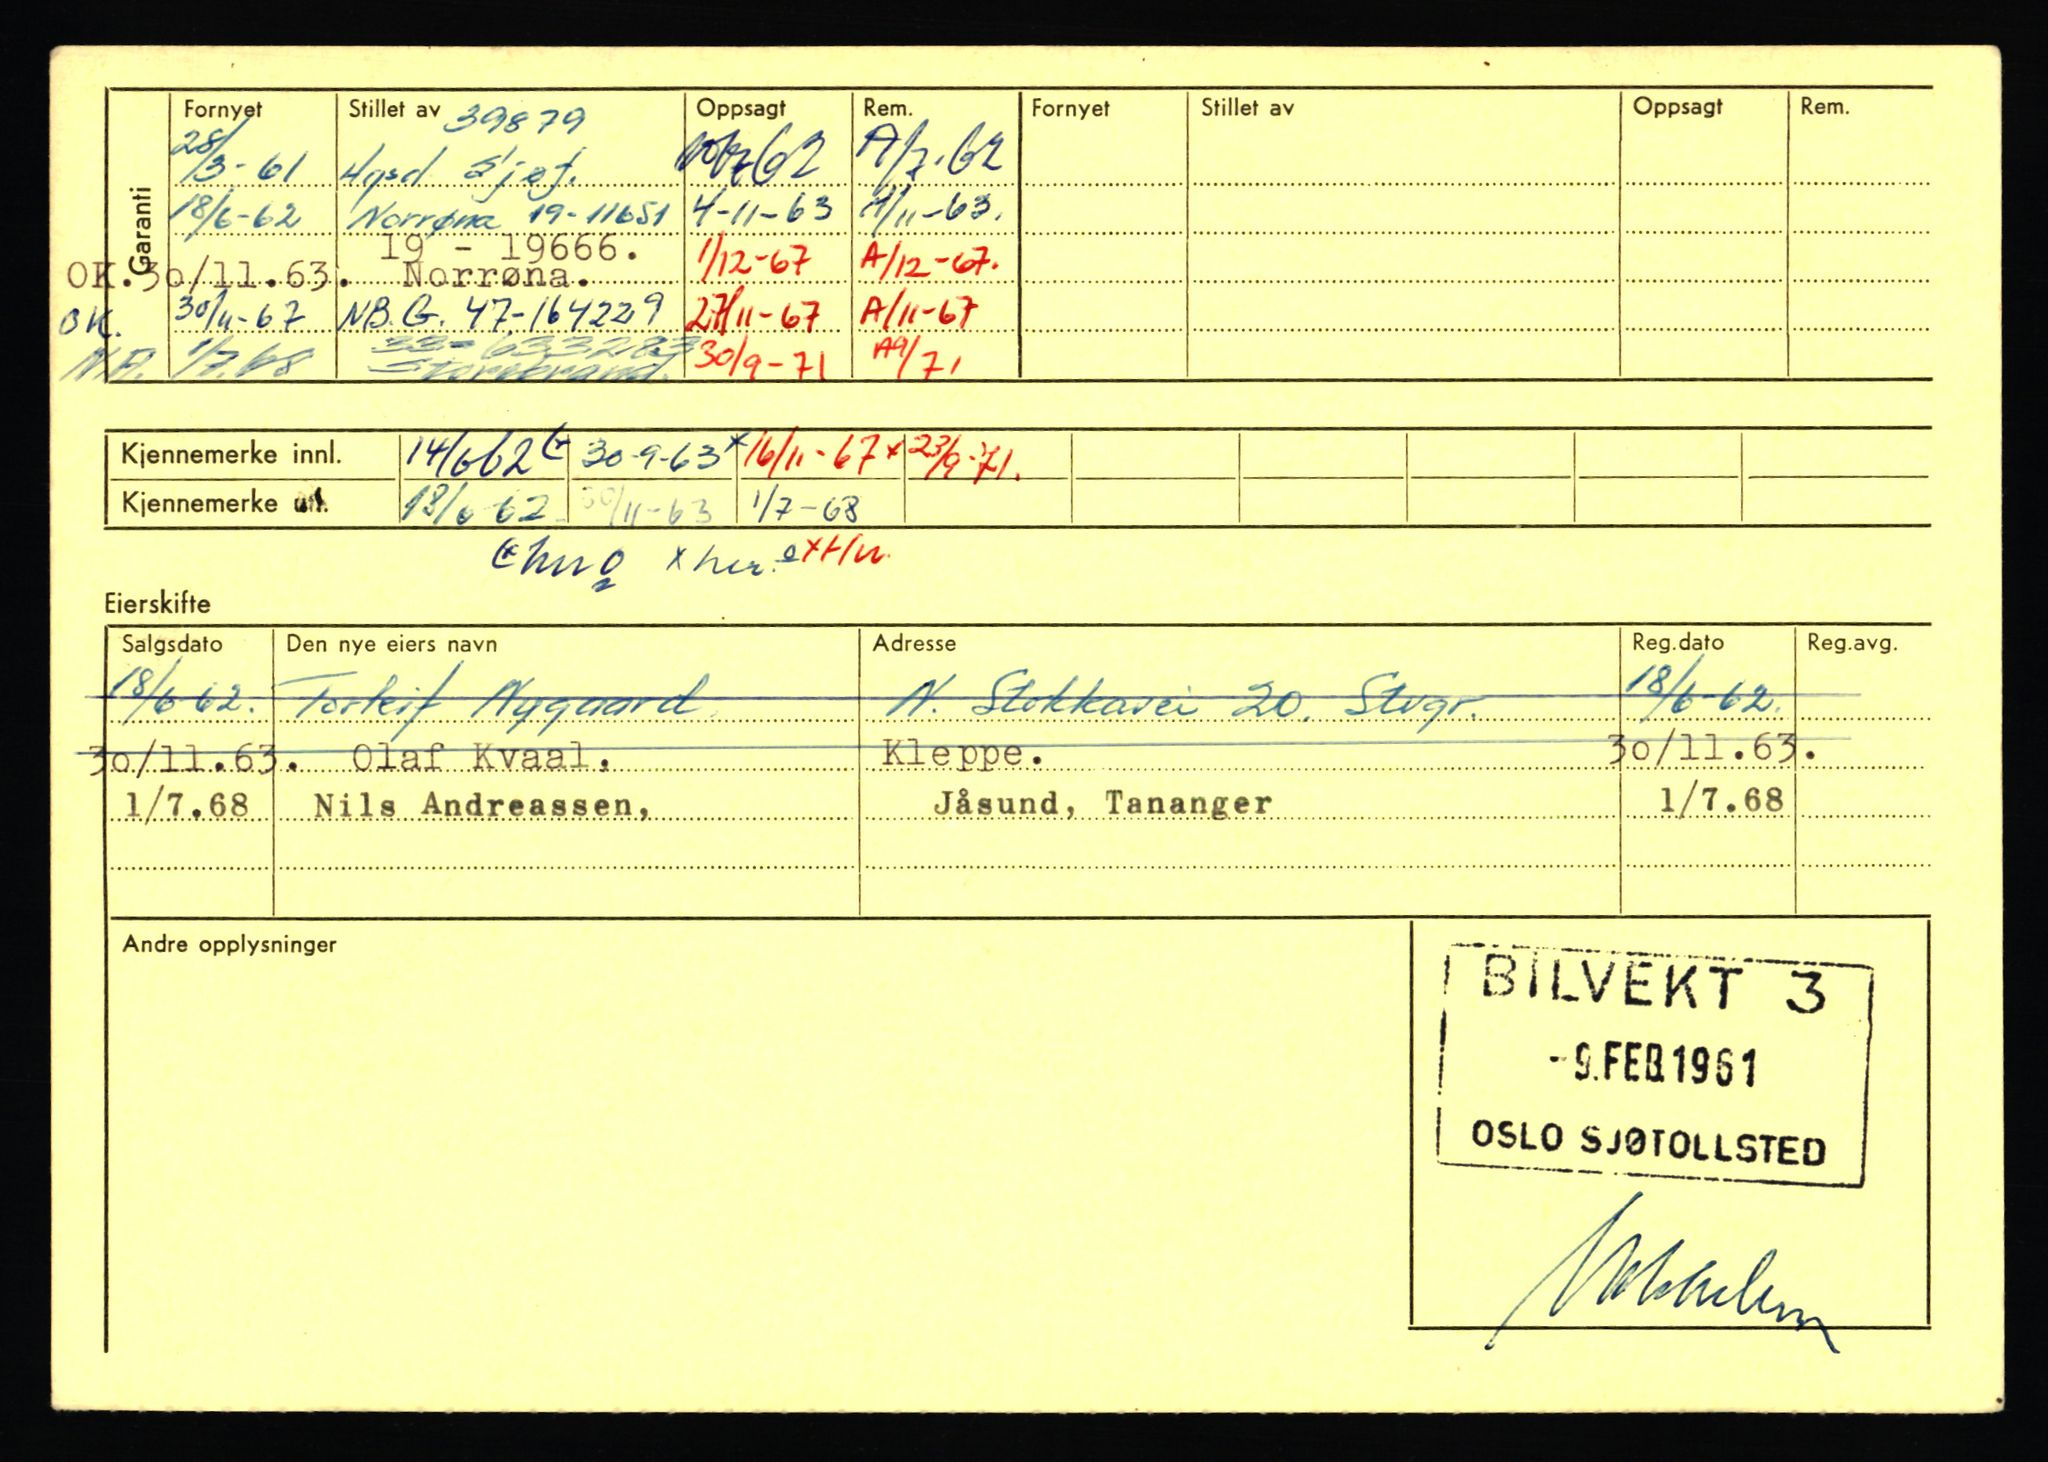 Garanti
Fornyet Stillet av 39879 Oppsagt Rem. Fornyet Stillet av Oppsagt Rem.
28/3-61 Hgsd Sjøf. 62 A/7.62
18/6-62 Norrøna 19-11651 4-11-63 A/11-63.
19 - 19666. 1/12-67 A/12-67.
OK. 30/11.63. Norrøna.
OK. 30/11-67 NB.G. 47-164229 27/11-67 A/11-67
N.A. 1/7.68 33-633283 Storebrand. 30/9-71 A9/71
Kjennemerke innl. 14/6 62 (x 30-9-63 x 16/11-67 x 23/9-71.
Kjennemerke utl. 18/6-62 30/11-63 1/7-68
Eierskifte
Salgsdato Den nye eiers navn Adresse Reg.dato Reg.avg.
18/6-62. Torleif Nygaard N. Stokkavei 20. Stvgr. 18/6-62.
30/11.63. Olaf Kvaal. Kleppe. 30/11.63.
1/7.68 Nils Andreassen, Jåsund, Tananger 1/7.68
Andre opplysninger
BILVEKT 3
-9.FEB.1961
OSLO SJØTOLLSTED